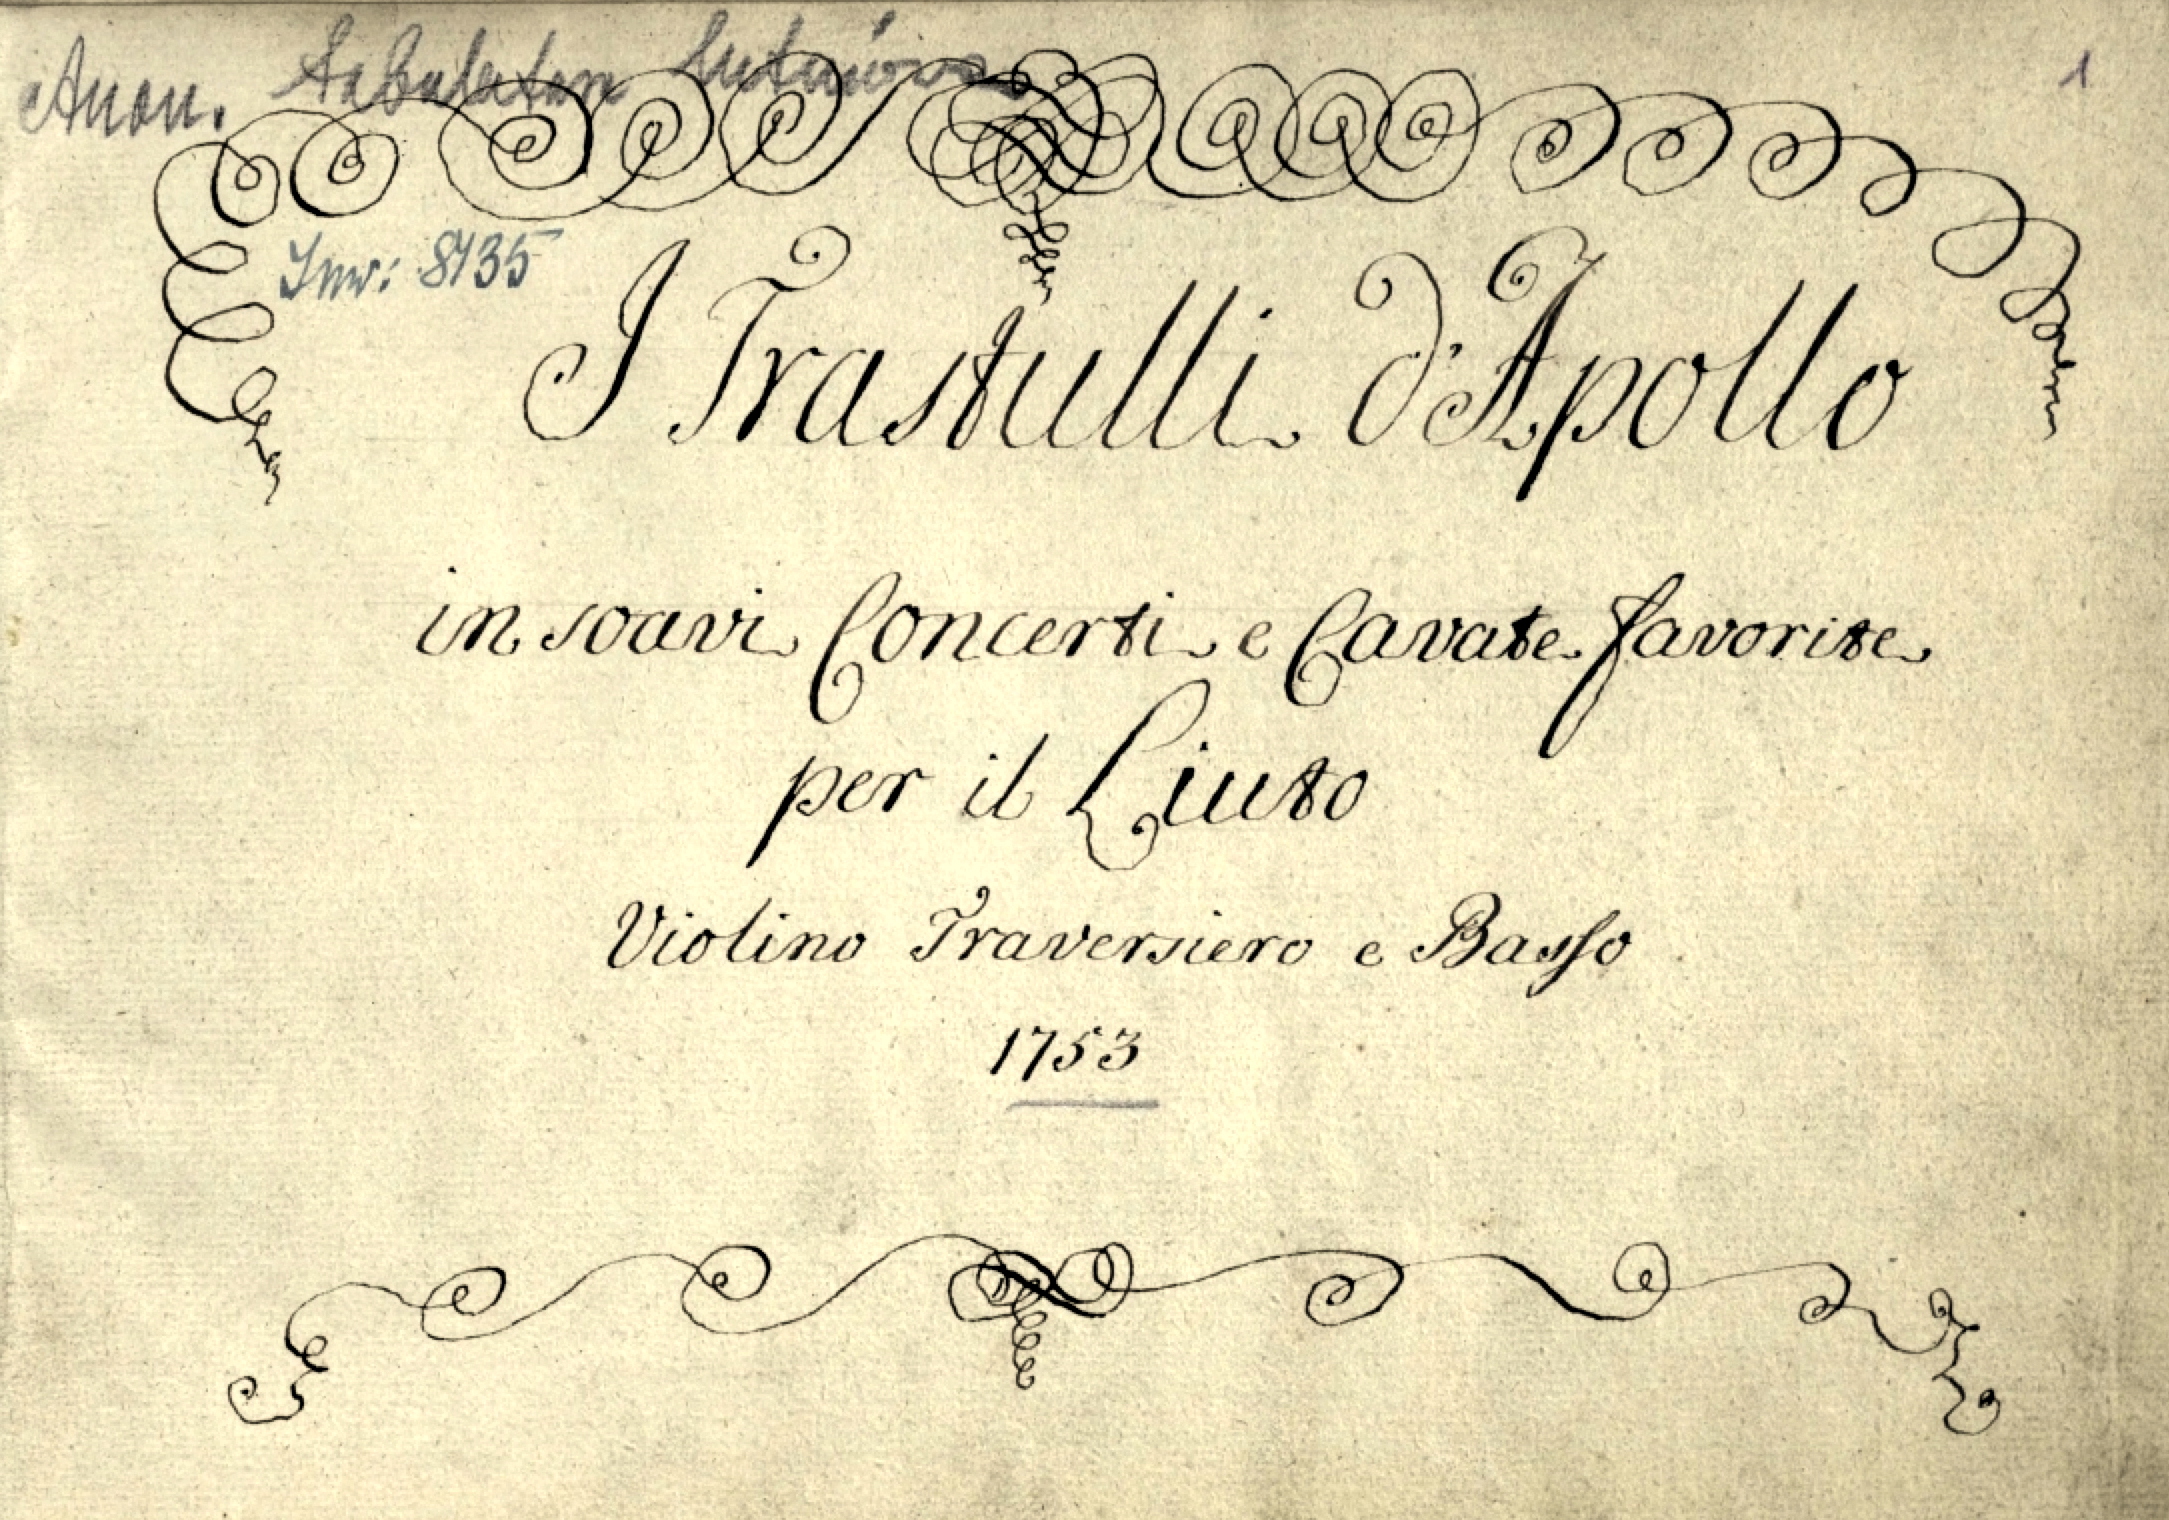 Anon. Tabulatura lutniowa
1
Inw: 8135
I Trastulli d'Apollo
in soavi Concerti e Cavate favorite
per il Liuto
Violino Traversiero e Basso
1753